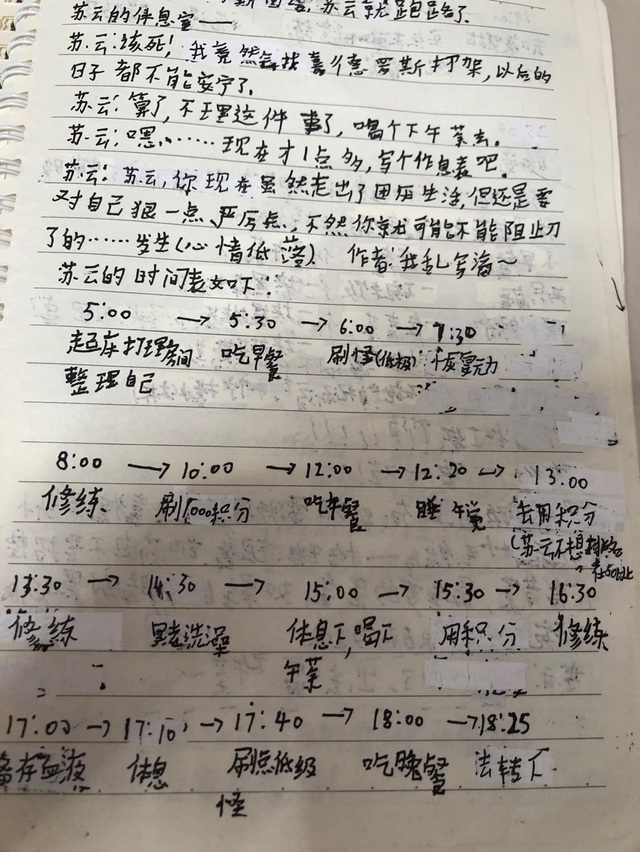 苏云就跑路了.
苏云的休息室——
苏云:该死!我竟然会找喜德罗斯打架,以后的
日子都不能安宁了.
苏云:算了,不理这件事了,喝个下午茶去.
苏云:嗯……现在才1点多,写个作息表吧.
苏云:苏云,你现在虽然走出了困居生活,但还是要
对自己狠一点严厉点,不然你就可能不能阻止刀
了的……发生(心情低落) 作者:我乱写滴~
苏云的时间表如下:
5:00 → 5:30 → 6:00 → 7:30
起床打理房间 吃早餐 刷怪(低极) 恢复灵力
整理自己
8:00 → 10:00 → 12:00 → 12:20 → 13:00
修练 刷1000积分 吃午餐 睡午觉 去用积分
(苏云不想排名
在50以上
13:30 → 14:30 → 15:00 → 15:30 → 16:30
修练 去洗澡 休息下,喝下 用积分 修练
午茶
17:00 → 17:10 → 17:40 → 18:00 → 18:25
备存血液 休息 刷点低级 吃晚餐
怪